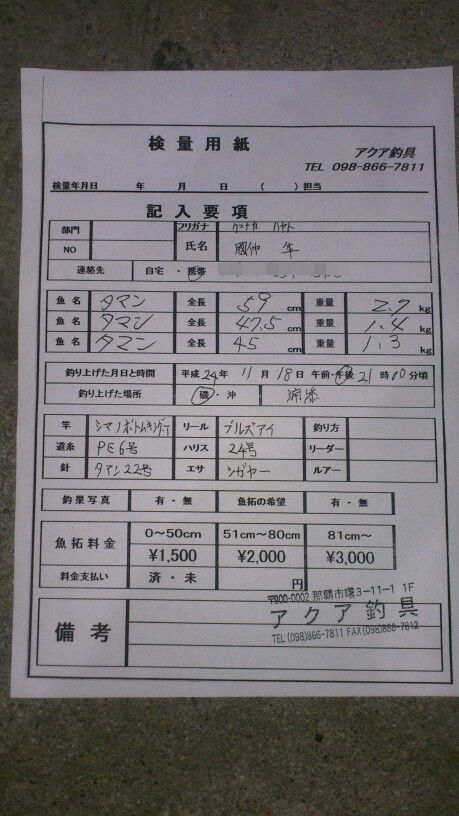 検量用紙
アクア釣具
TEL 098-866-7811
検量年月日 年 月 日 ( )担当
記入要項
部門 フリガナ クニナカ ハヤト
NO 氏名 國仲 隼
連絡先 自宅・携帯
魚名 タマン 全長 59 cm 重量 2.7 kg
魚名 タマン 全長 47.5 cm 重量 1.4 kg
魚名 タマン 全長 45 cm 重量 1.3 kg
釣り上げた月日と時間 平成 24年 11月 18日 午前・午後 21時00分頃
釣り上げた場所 磯・沖 浦添
竿 シマノボトムキング リール ブルズアイ 釣り方
道糸 PE6号 ハリス 24号 リーダー
針 タマン22号 エサ シガヤー ルアー
釣果写真 有・無 魚拓の希望 有・無
魚拓料金 0～50cm 51cm～80cm 81cm～
¥1,500 ¥2,000 ¥3,000
料金支払い 済・未 円
備考
〒900-0002 那覇市曙3-11-1 1F
アクア釣具
TEL(098)866-7811 FAX(098)866-7812